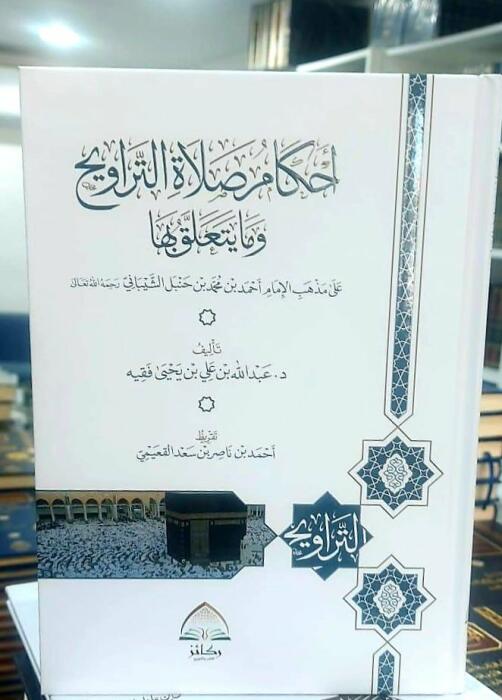 أحكام صلاة التراويح
وما يتعلق بها
على مذهب الإمام أحمد بن محمد بن حنبل الشيباني رحمه الله تعالى
تأليف
د. عبدالله بن علي بن يحيى فقيه
تقريظ
أحمد بن ناصر بن سعد القعيمي
التراويح
ركائز